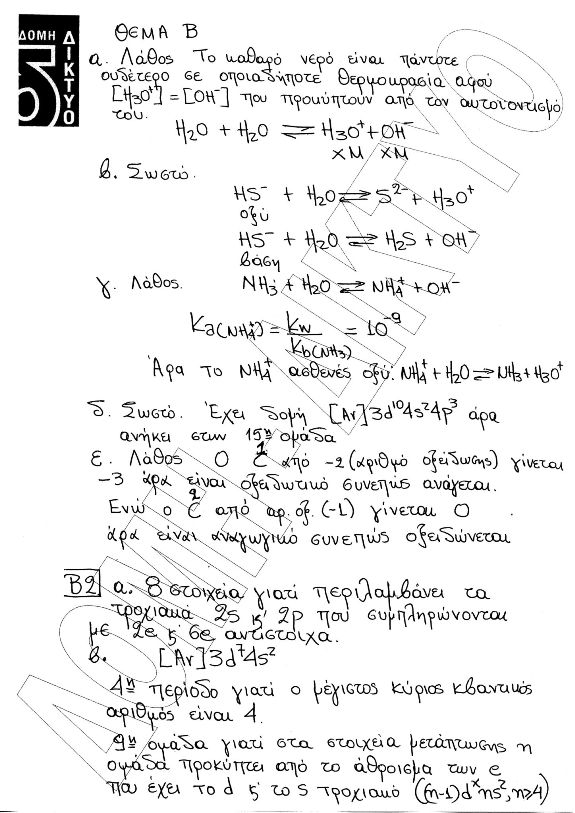 ΔΟΜΗ
ΔΙΚΤΥΟ
ΔΟΜΗ ΔΙΚΤΥΟ
ΘΕΜΑ Β
α. Λάθος Το καθαρό νερό είναι πάντοτε
ουδέτερο σε οποιαδήποτε θερμοκρασία αφού
[H3O+] = [OH-] που προκύπτουν από τον αυτοϊοντισμό
του.
H2O + H2O ⇌ H3O+ + OH-
xM xM
β. Σωστό.
HS- + H2O ⇌ S2- + H3O+
οξύ
HS- + H2O ⇌ H2S + OH-
βάση
γ. Λάθος. NH3 + H2O ⇌ NH4+ + OH-
Ka(NH4+) = Kw / Kb(NH3) = 10-9
Άρα το NH4+ ασθενές οξύ. NH4+ + H2O ⇌ NH3 + H3O+
δ. Σωστό. Έχει δομή [Ar]3d10 4s2 4p3 άρα
ανήκει στην 15η ομάδα
ε. Λάθος Ο C1 από -2 (αριθμό οξείδωσης) γίνεται
-3 άρα είναι οξειδωτικό συνεπώς ανάγεται.
Ενώ ο C2 από αρ.οξ. (-1) γίνεται 0
άρα είναι αναγωγικό συνεπώς οξειδώνεται
B2 α. 8 στοιχεία γιατί περιλαμβάνει τα
τροχιακά 2s ϗ 2p που συμπληρώνονται
με 2e ϗ 6e αντίστοιχα.
β. [Ar]3d7 4s2
4η περίοδο γιατί ο μέγιστος κύριος κβαντικός
αριθμός είναι 4.
9η ομάδα γιατί στα στοιχεία μετάπτωσης η
ομάδα προκύπτει από το άθροισμα των e
που έχει το d ϗ το s τροχιακό ((n-1)dx ns2, n≥4)